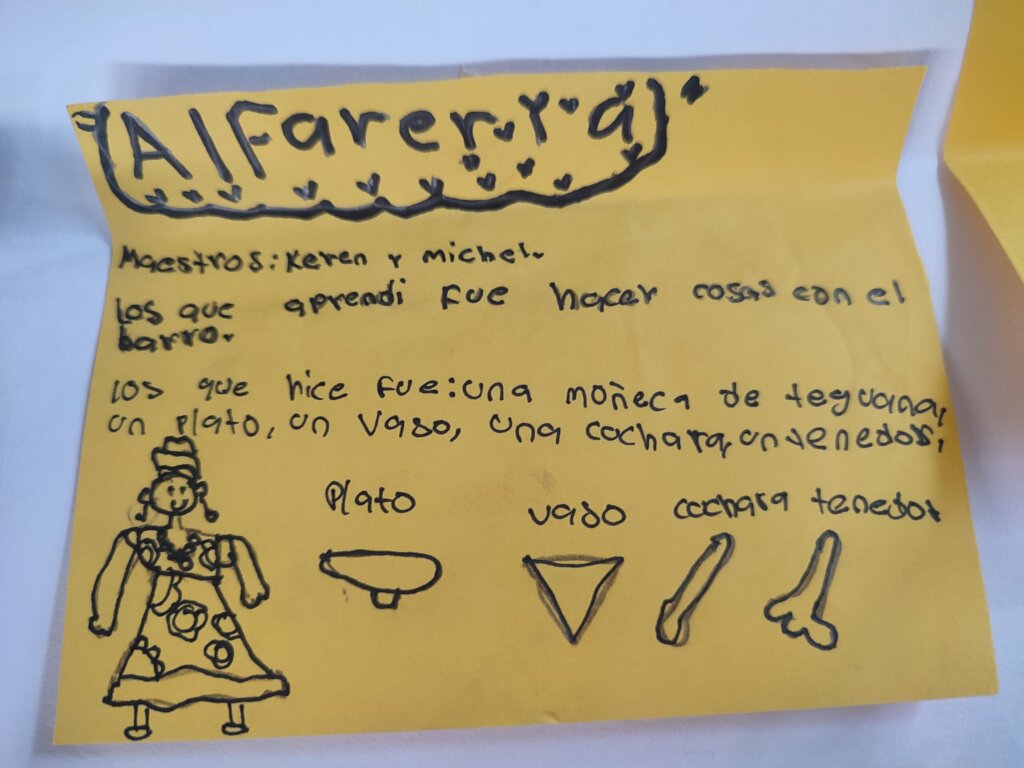 Alfareria
Maestros: Keren y michel.
Los que aprendi fue hacer cosas con el
barro.
Los que hice fue: una moñeca de teguana,
un plato, un vaso, una cochara, un tenedor,
Plato
vaso
cochara
tenedor